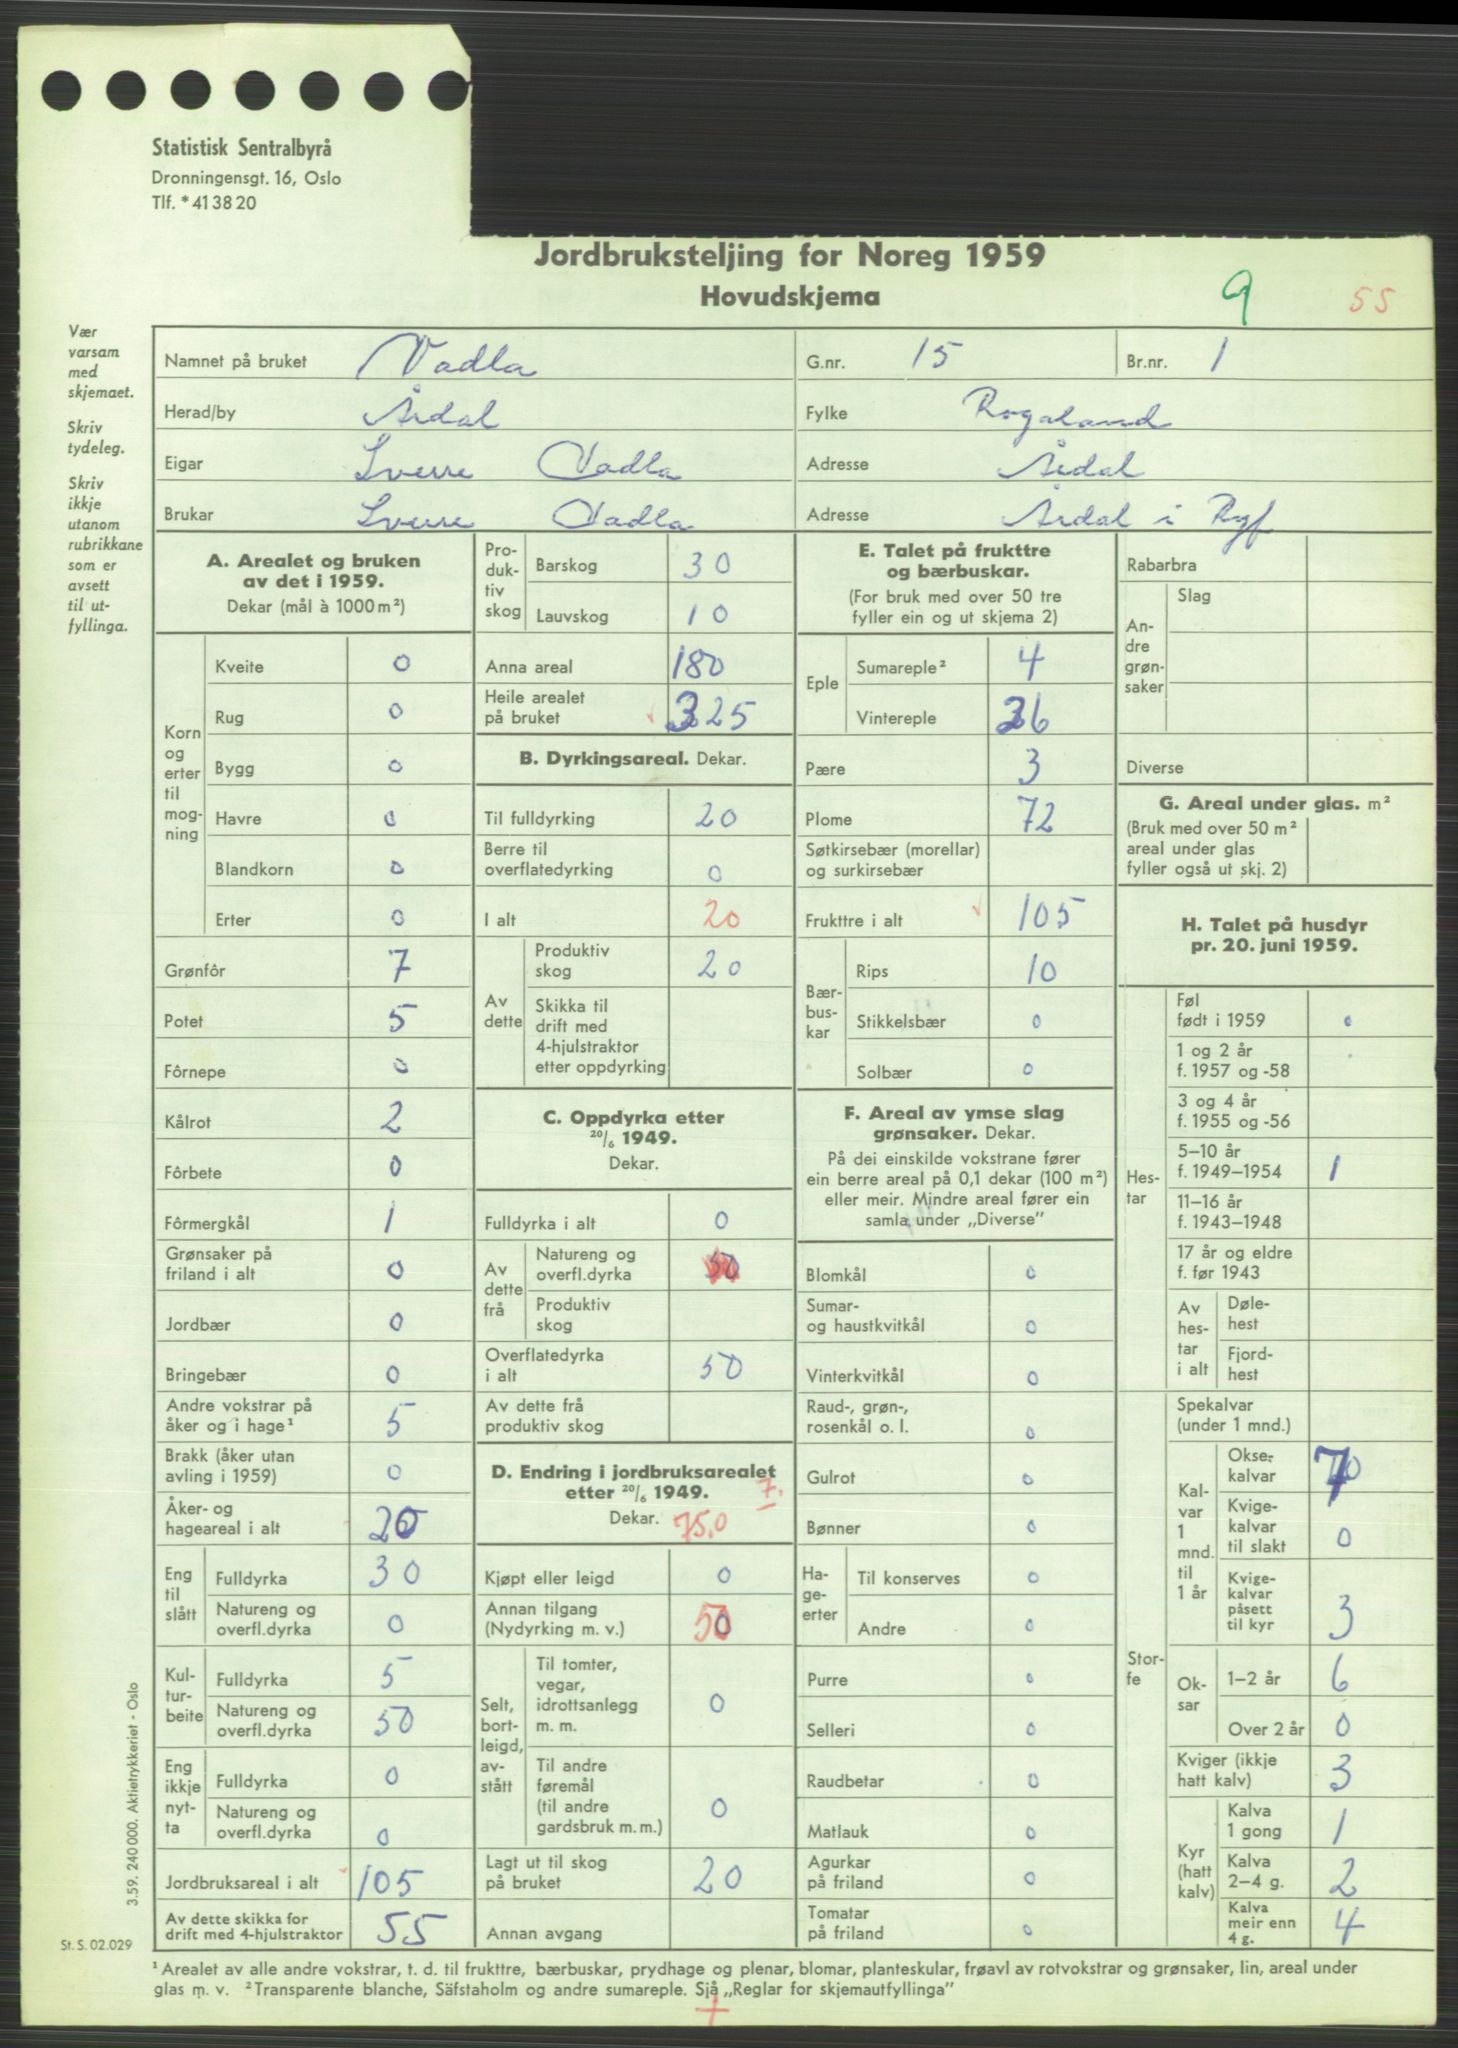 Statistisk Sentralbyrå
Dronningensgt. 16, Oslo
Tlf. * 41 38 20
Jordbruksteljing for Noreg 1959
Hovudskjema
9 55
Vær
varsam
med
skjemaet.
Skriv
tydeleg.
Skriv
ikkje
utanom
rubrikkane
som er
avsett
til ut-
fyllinga.
Namnet på bruket Vadla G.nr. 15 Br.nr. 1
Herad/by Årdal Fylke Rogaland
Eigar Sverre Vadla Adresse Årdal
Brukar Sverre Vadla Adresse Årdal i Ryf
A. Arealet og bruken
av det i 1959.
Dekar (mål à 1000 m²)
Korn
og
erter
til
mog-
ning
Kveite 0
Rug 0
Bygg 0
Havre 0
Blandkorn 0
Erter 0
Grønfôr 7
Potet 5
Fôrnepe 0
Kålrot 2
Fôrbete 0
Fôrmergkål 1
Grønsaker på
friland i alt 0
Jordbær 0
Bringebær 0
Andre vokstrar på
åker og i hage¹ 5
Brakk (åker utan
avling i 1959) 0
Åker- og
hageareal i alt 20
Eng
til
slått
Fulldyrka 30
Natureng og
overfl.dyrka 0
Kul-
tur-
beite
Fulldyrka 5
Natureng og
overfl.dyrka 50
Eng
ikkje
nyt-
ta
Fulldyrka 0
Natureng og
overfl.dyrka 0
Jordbruksareal i alt 105
Av dette skikka for
drift med 4-hjulstraktor 55
Pro-
duk-
tiv
skog
Barskog 30
Lauvskog 10
Anna areal 180
Heile arealet
på bruket 325
B. Dyrkingsareal. Dekar.
Til fulldyrking 20
Berre til
overflatedyrking 0
I alt 20
Av
dette
Produktiv
skog 20
Skikka til
drift med
4-hjulstraktor
etter oppdyrking
C. Oppdyrka etter
20/6 1949.
Dekar.
Fulldyrka i alt 0
Av
dette
frå
Natureng og
overfl.dyrka 50
Produktiv
skog
Overflatedyrka
i alt 50
Av dette frå
produktiv skog
D. Endring i jordbruksarealet
etter 20/6 1949. 7.
Dekar. 75.0
Kjøpt eller leigd 0
Annan tilgang
(Nydyrking m. v.) 50
Selt,
bort-
leigd,
av-
stått
Til tomter,
vegar,
idrottsanlegg
m. m. 0
Til andre
føremål
(til andre
gardsbruk m. m.) 0
Lagt ut til skog
på bruket 20
Annan avgang
E. Talet på frukttre
og bærbuskar.
(For bruk med over 50 tre
fyller ein og ut skjema 2)
Eple
Sumareple² 4
Vintereple 26
Pære 3
Plome 72
Søtkirsebær (morellar)
og surkirsebær
Frukttre i alt 105
Bær-
bus-
kar
Rips 10
Stikkelsbær 0
Solbær 0
F. Areal av ymse slag
grønsaker. Dekar.
På dei einskilde vokstrane fører
ein berre areal på 0,1 dekar (100 m²)
eller meir. Mindre areal fører ein
samla under „Diverse”
Blomkål 0
Sumar-
og haustkvitkål 0
Vinterkvitkål 0
Raud-, grøn-,
rosenkål o. l. 0
Gulrot 0
Bønner 0
Ha-
ge-
erter
Til konserves 0
Andre 0
Purre 0
Selleri 0
Raudbetar 0
Matlauk 0
Agurkar
på friland 0
Tomatar
på friland 0
Rabarbra
An-
dre
grøn-
saker
Slag
Diverse
G. Areal under glas. m²
(Bruk med over 50 m²
areal under glas
fyller også ut skj. 2)
H. Talet på husdyr
pr. 20. juni 1959.
Hes-
tar
Føl
født i 1959 0
1 og 2 år
f. 1957 og -58
3 og 4 år
f. 1955 og -56
5–10 år
f. 1949–1954 1
11–16 år
f. 1943–1948
17 år og eldre
f. før 1943
Av
hes-
tar
i alt
Døle-
hest
Fjord-
hest
Stor-
fe
Spekalvar
(under 1 mnd.)
Kal-
var
1
mnd.
til
1 år
Okse-
kalvar 7
Kvige-
kalvar
til slakt 0
Kvige-
kalvar
påsett
til kyr 3
Ok-
sar
1–2 år 6
Over 2 år 0
Kviger (ikkje
hatt kalv) 3
Kyr
(hatt
kalv)
Kalva
1 gong 1
Kalva
2–4 g. 2
Kalva
meir enn
4 g. 4
3.59. 240 000. Aktietrykkeriet - Oslo
St. S. 02.029
¹ Arealet av alle andre vokstrar, t. d. til frukttre, bærbuskar, prydhage og plenar, blomar, planteskular, frøavl av rotvokstrar og grønsaker, lin, areal under
glas m. v. ² Transparente blanche, Säfstaholm og andre sumareple. Sjå „Reglar for skjemautfyllinga”